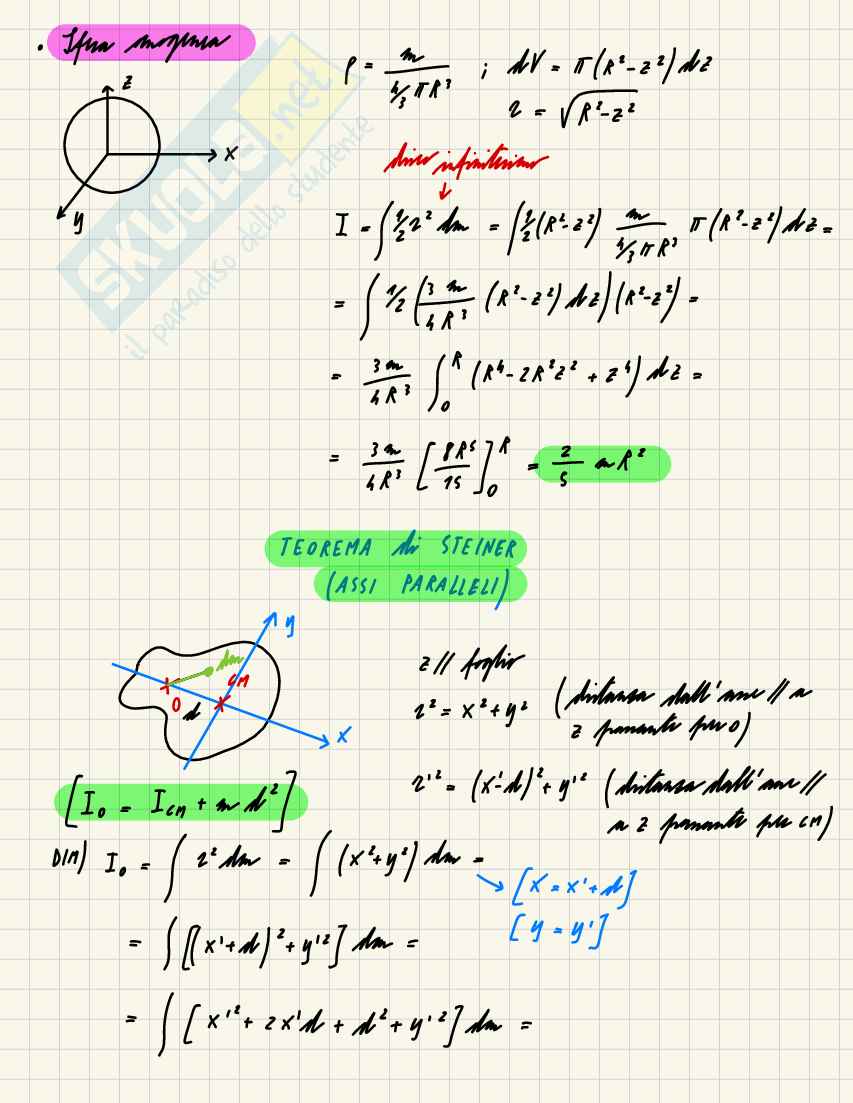 • Sfera omogenea
ρ = m / (4/3 π R³) ; dV = π(R²-z²) dz
z
r = √(R²-z²)
x
y
disco infinitesimo
↓
I = ∫ 1/2 r² dm = ∫ 1/2 (R²-z²) m / (4/3 π R³) π(R²-z²) dz =
= ∫ 1/2 (3m / 4R³ (R²-z²) dz)(R²-z²) =
= 3m / 4R³ ∫₀ᴿ (R⁴ - 2R²z² + z⁴) dz =
= 3m / 4R³ [8R⁵ / 15]₀ᴿ = 2/5 m R²
SKUOLA.net
il paradiso dello studente
TEOREMA di STEINER
(ASSI PARALLELI)
y
dm
CM
O
d
x
z // foglio
r² = x² + y² (distanza dall'asse // a
z passante per O)
r'² = (x'-d)² + y'² (distanza dall'asse //
a z passante per CM)
[I₀ = I_CM + m d²]
DIM) I₀ = ∫ r² dm = ∫ (x²+y²) dm =
→ [x = x' + d]
[y = y']
= ∫ [(x'+d)² + y'²] dm =
= ∫ [x'² + 2x'd + d² + y'²] dm =